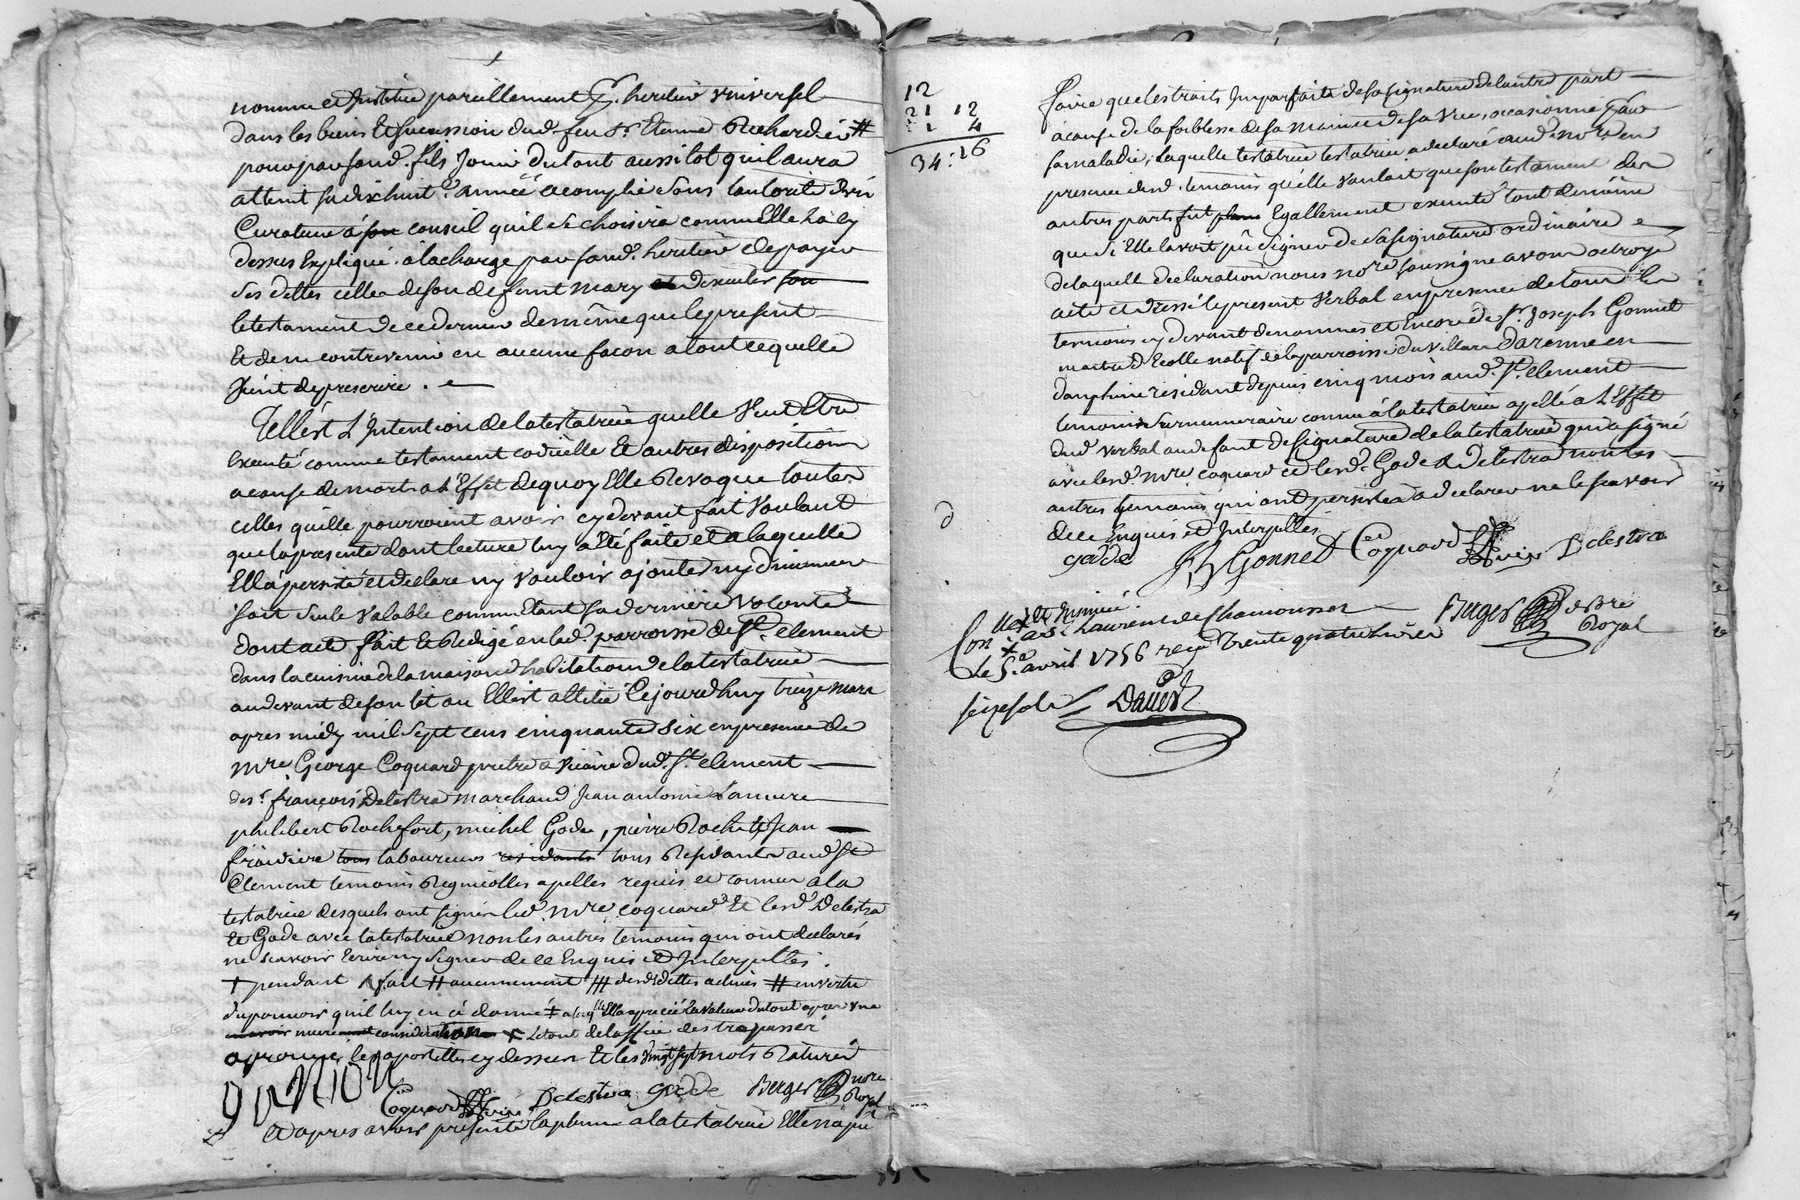 nomme et Institue pareillement pr. heritier vniversel
dans les biens et succession dud. feu Sr. Etienne Richard
pour par sond. fils Jouir du tout aussitot quil aura
atteint sa dixhuite. année acomplie sous lautorité d'vn
Curateur à son conseil quil se choisira comme Elle la cy
dessus Expliqué. a la charge par sond. heritier de payer
ses dettes celles de son defeunt mary et dexecuter son
le testament de ce dernier de même que le present
Et de ny contrevenir en aucune façon a tout ce quelle
vient de prescrire.
Tell'est L'Intention de la testatrice quelle veut Etre
Executé comme testament codicille Et autres disposition
a cause de mort a L'Effet de quoy Elle Revoque toutes
celles quelle pourroient avoir cy devant fait voulant
que la presente dont lecture luy a Eté faite et a laquelle
Ell'a persisté et declare ny vouloir ajouter ny diminuer
soit seule valable comme Etant sa derniere volonté
dont acte fait et Redigé en lad. parroisse de St. clement
dans la cuisine de la maison d'habitation de la testatrice
au devant de son lit ou Ell'est allitée Cejourdhuy treize mars
apres midy mil sept cens cinquante six en presence de
mre. George Coquard pretre & vicaire dud. St. clement
de sr. françois Delestra marchand Jean antoine Lamure
philibert Rochefort, michel Gode, pierre Roche et Jean
tous laboureurs residants tous Residants aud. St
Clement temoins Regnicolles apelles requis et connus a la
testatrice desquels ont signés led. mre. coquard Et lesd. Delestra
Et Gode avec la testatrice non les autres temoins qui ont declarés
ne scavoir Ecrire ny signer de ce Enquis et Interpellés.
+ pendant ʌ fait # aucunement ### desd. dettes actives # en vertu
du pouvoir quil luy en à donné Ell'a apretié La valeur du tout apres vne
mure consideration × Le tout de la ffaire des trepassés
aprouvés les apostilles cy dessus Et les vingt sept mots Raturés
Coquard vicaire Delestra Godde Berger nore. Royal
Et apres avoir presenté la plume a la testatrice Elle n'a pu
12
21 12
1 4
34: 16
faire que les traits Imparfaits de sa signature de lautre part
à cause de la foiblesse de sa main et de sa vue, occasionné par
sa maladie, laquelle testatrice testatrice a declaré aud. nore. en
presence desd. temoins qu'elle vouloit que son testament des
autres parts fut plaine Egallement executé tout de même
que si Elle lavoit pû signer de sa signature ordinaire
de laquelle declaration nous nore. soussigné avons octroyé
acte et dressé le present verbal en presence de tous les
temoins cy devant denommés et Encore de sr. Joseph Gonnet
maitre d'Ecolle natif de la parroisse du villard darenne en
dauphiné residant depuis cinq mois aud. St. clement
temoin surnumeraire connu à la testatrice apellé a L'Effet
dud. verbal au defaut de signature de la testatrice qui a signé
avec led. mre. coquard et lesd. Gode & Delestra non les
autres temoins qui ont persistés a declarer ne le scavoir
de ce Enquis et Interpellés.
Godde Gonnet Coquard vicaire Delestra
Conlé et Insinué
a St Laurent de Chamousset Berger nore Royal
Le 5e. avril 1756 reçu Trente quatre livres
seize sols Daviet